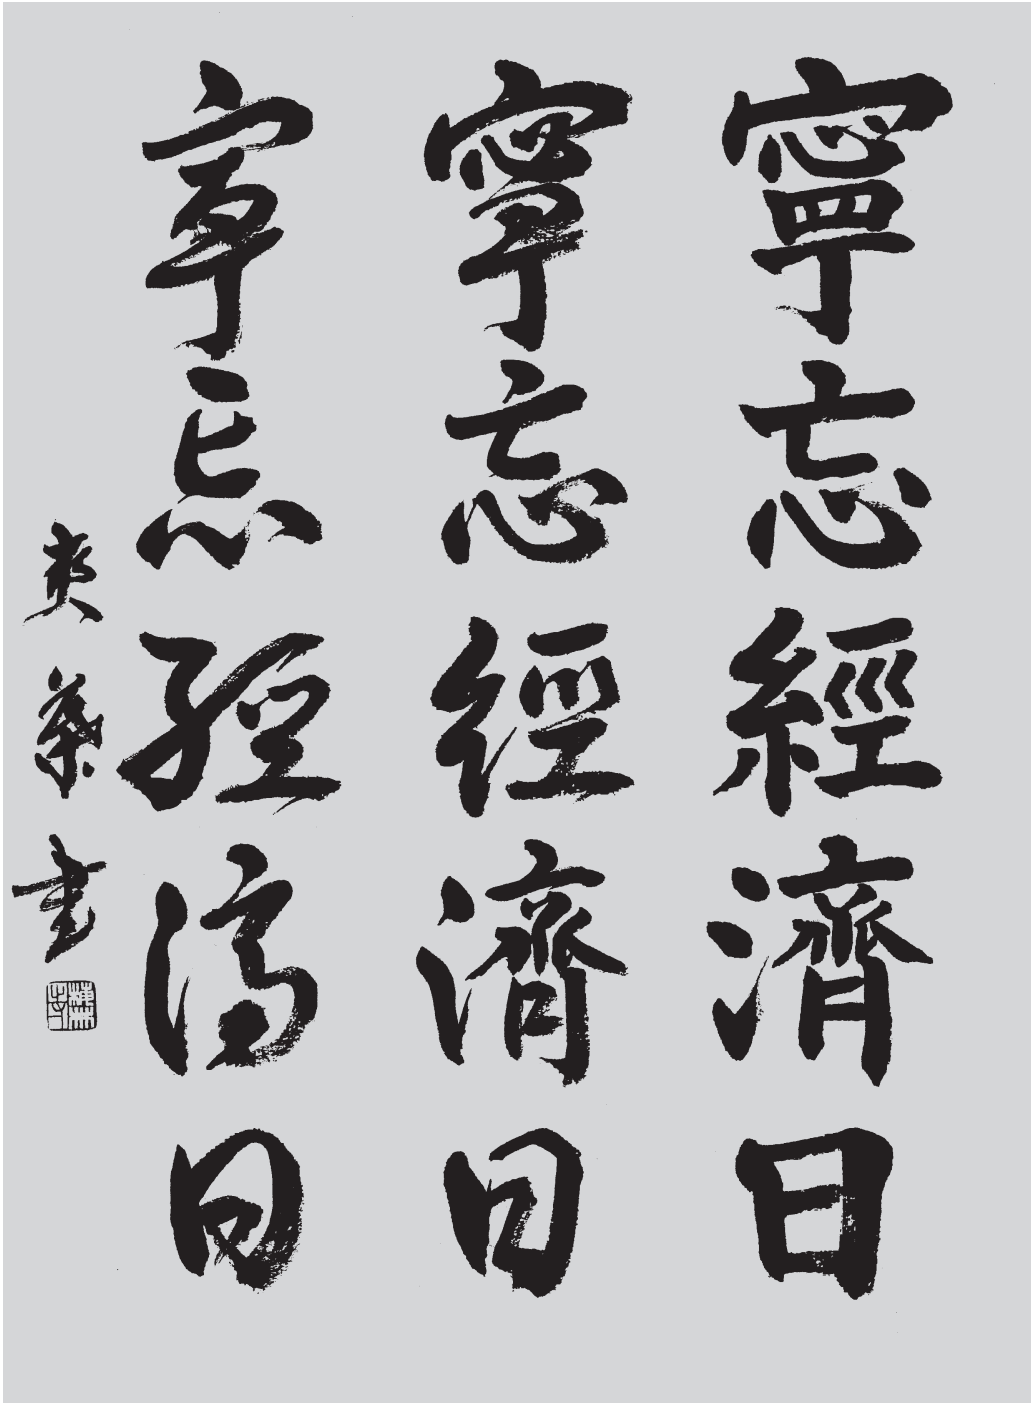 寧忘經濟日
寧忘經濟日
寧忘經濟日
爽葉書